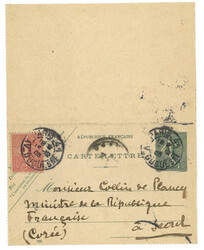 RÉPUBLIQUE FRANÇAISE
CARTE-LETTRE
Monsieur Collin de Plancy
Ministre de la République
Française
(Corée) à Seoul